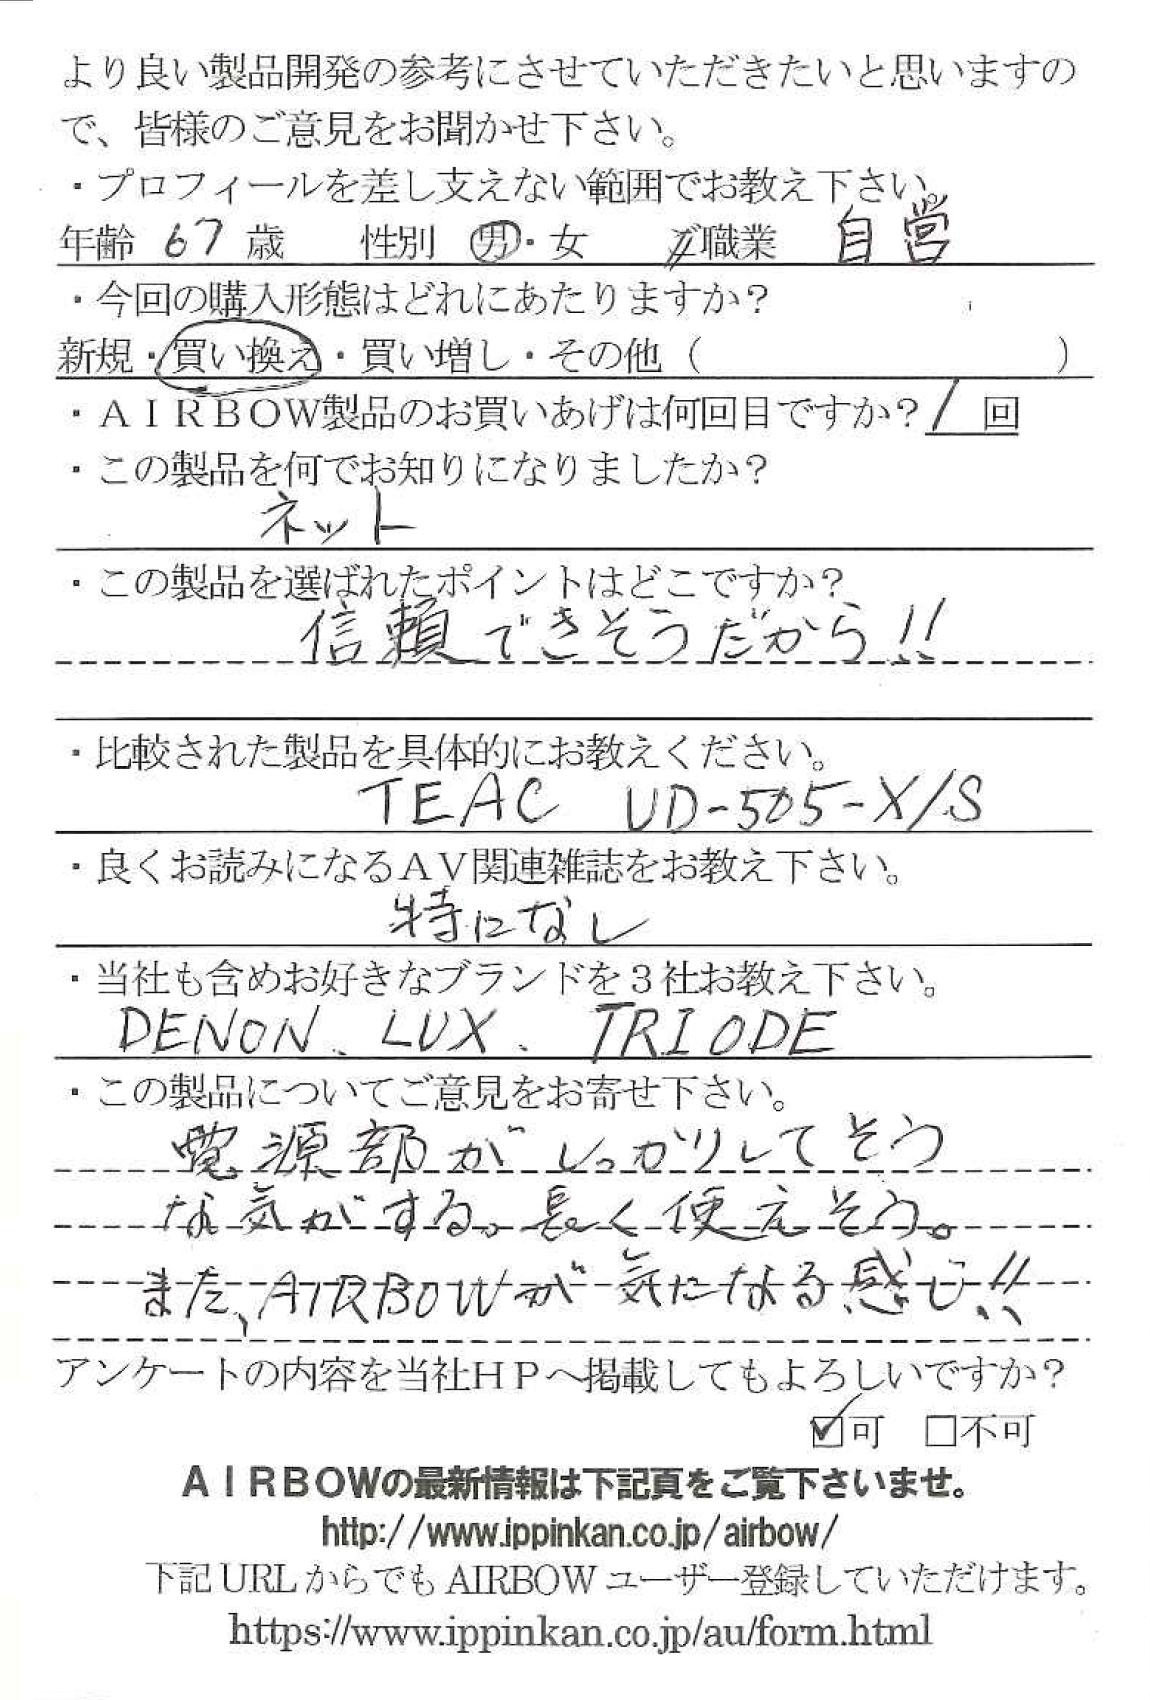 より良い製品開発の参考にさせていただきたいと思いますの
で、皆様のご意見をお聞かせ下さい。
・プロフィールを差し支えない範囲でお教え下さい。
年齢 67 歳 性別 男・女 ご職業 自営
・今回の購入形態はどれにあたりますか?
新規・買い換え・買い増し・その他( )
・AIRBOW製品のお買いあげは何回目ですか? 1 回
・この製品を何でお知りになりましたか?
ネット
・この製品を選ばれたポイントはどこですか?
信頼できそうだから!!
・比較された製品を具体的にお教えください。
TEAC UD-505-X/S
・良くお読みになるAV関連雑誌をお教え下さい。
特になし
・当社も含めお好きなブランドを3社お教え下さい。
DENON、LUX、TRIODE
・この製品についてご意見をお寄せ下さい。
電源部がしっかりしてそう
な気がする。長く使えそう。
また、AIRBOWが気になる感じ!!
アンケートの内容を当社HPへ掲載してもよろしいですか?
☑可 □不可
AIRBOWの最新情報は下記頁をご覧下さいませ。
http://www.ippinkan.co.jp/airbow/
下記URLからでもAIRBOWユーザー登録していただけます。
https://www.ippinkan.co.jp/au/form.html